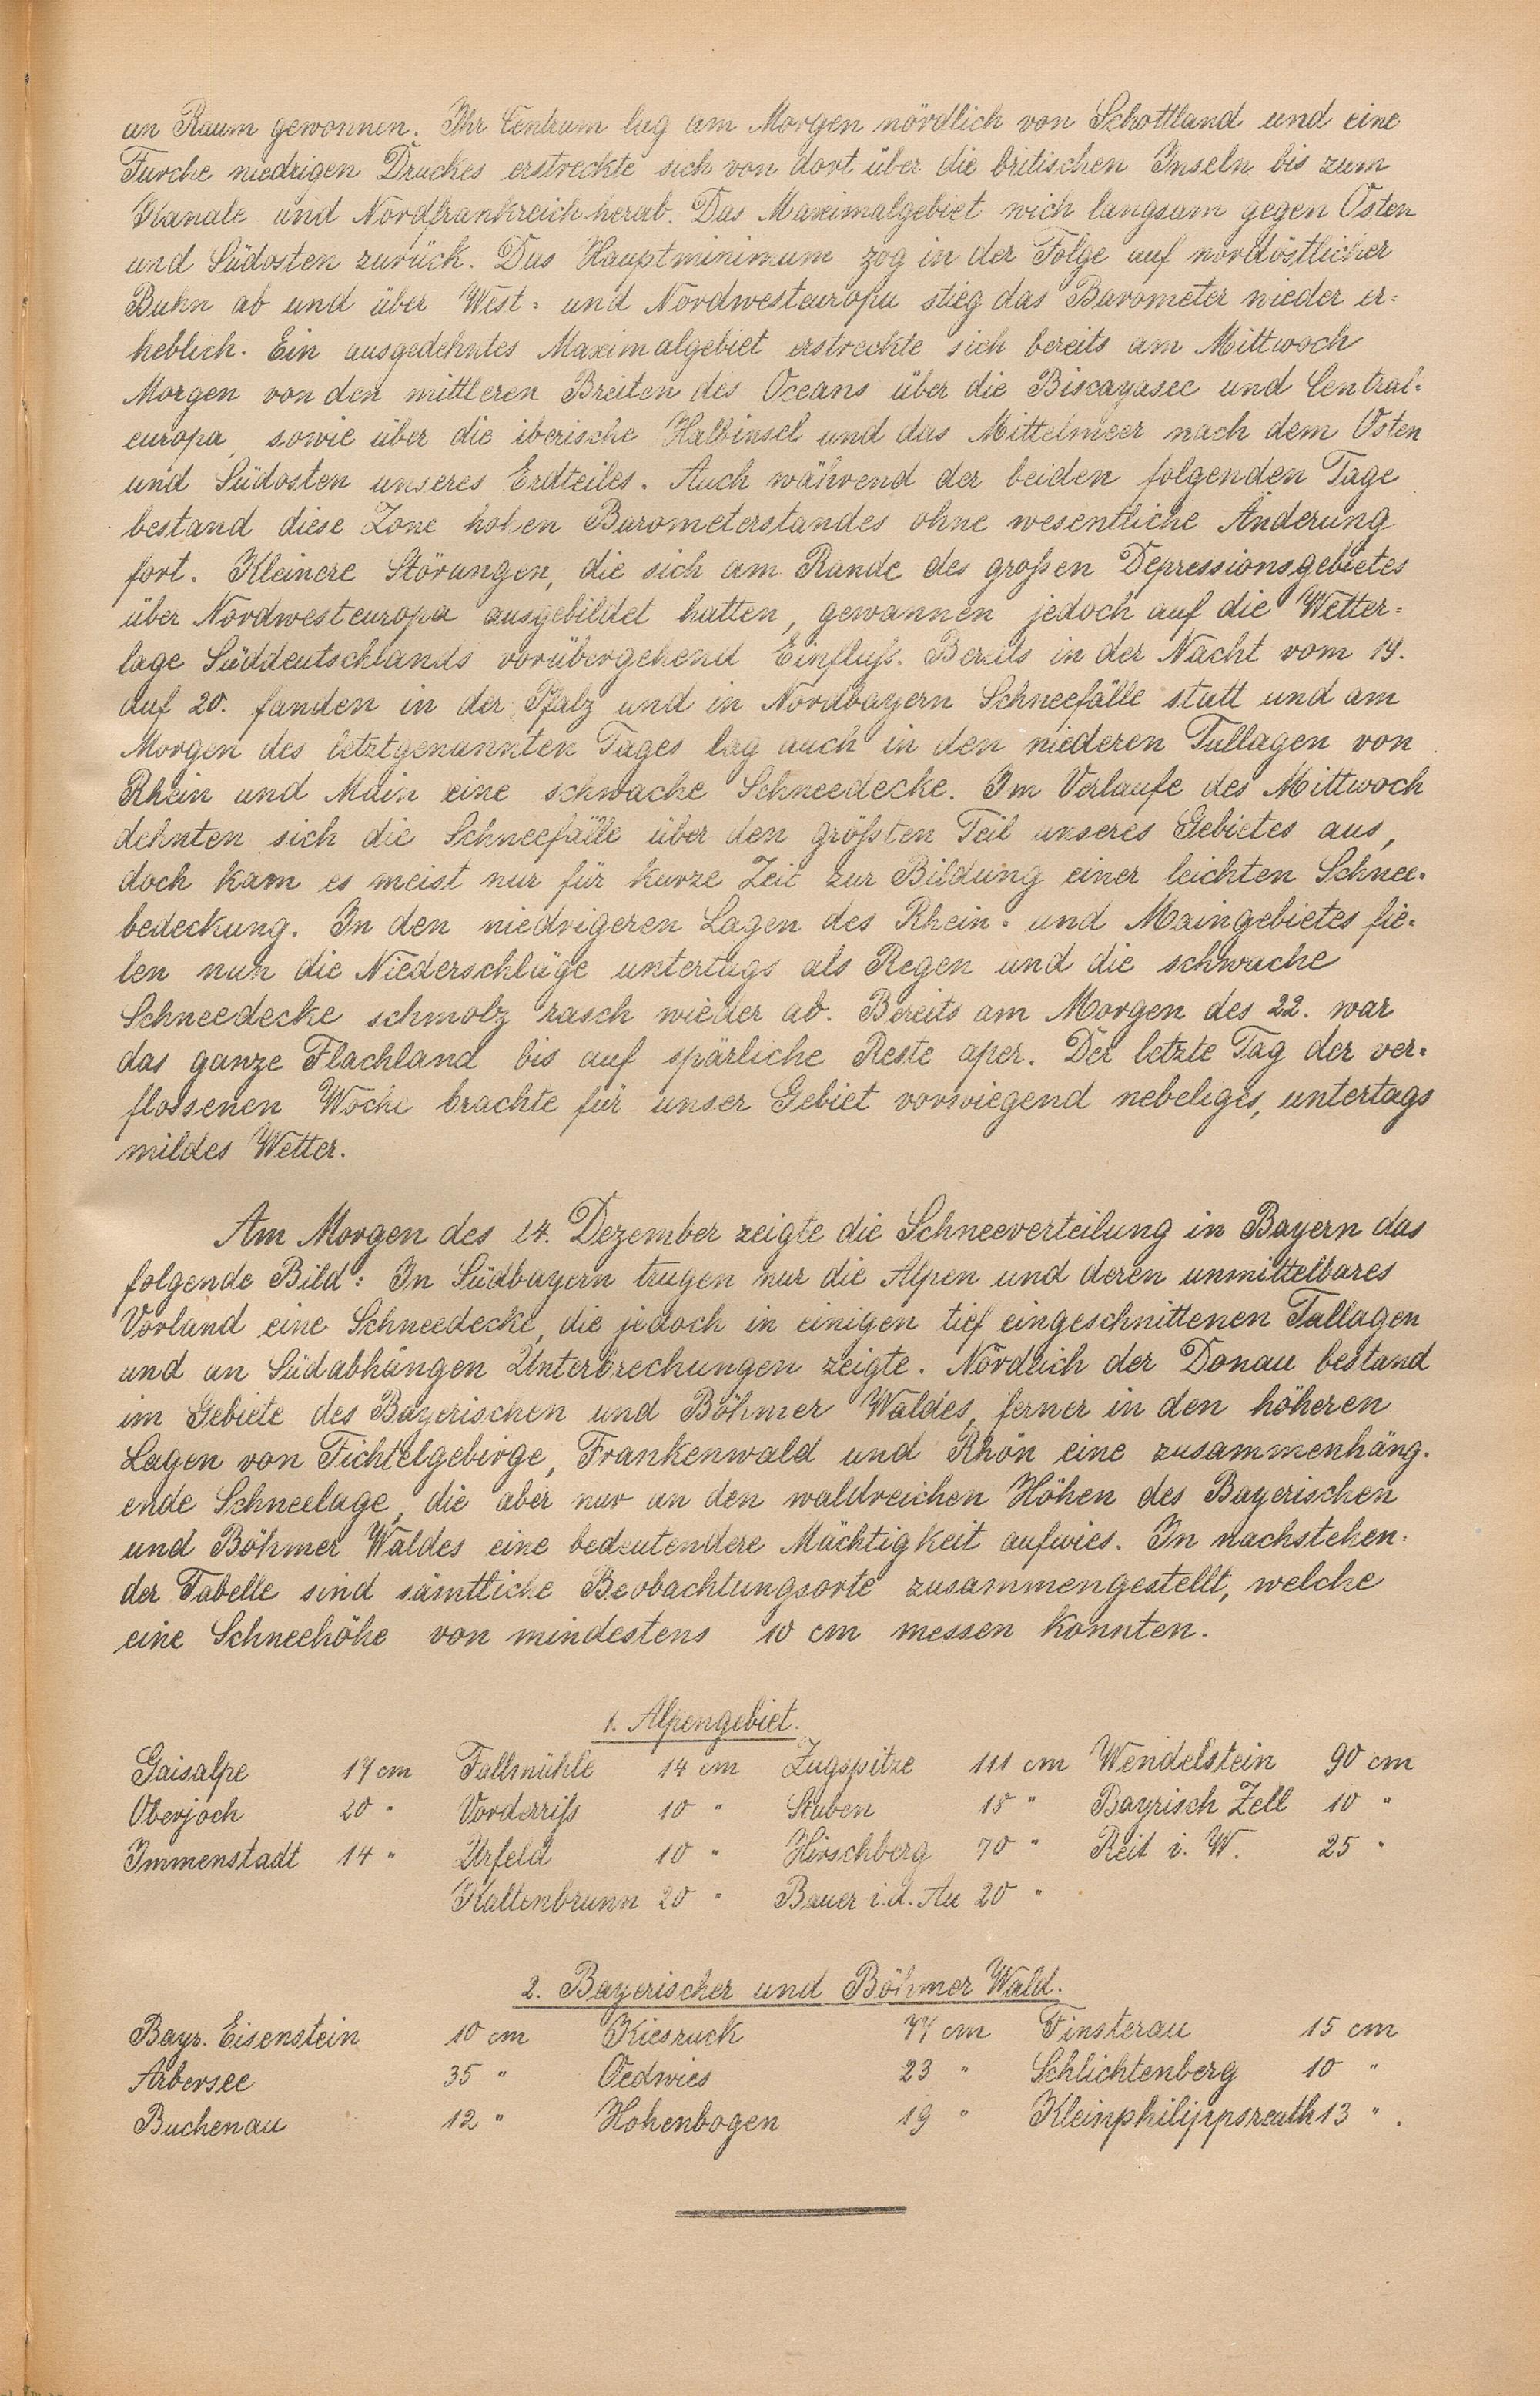 an Raum gewonnen. Ihr Centrum lag am Morgen nördlich von Schottland und eine
Furche niedrigen Druckes erstreckte sich von dort über die britischen Inseln bis zum
Kanale und Nordfrankreich herab. Das Maximalgebiet wich langsam gegen Osten
und Südosten zurück. Das Hauptminimum zog in der Folge auf nordöstlicher
Bahn ab und über West- und Nordwesteuropa stieg das Barometer wieder er-
heblich. Ein ausgedehntes Maximalgebiet erstreckte sich bereits am Mittwoch
Morgen von den mittleren Breiten des Oceans über die Biscayasee und Central-
europa, sowie über die iberische Halbinsel und das Mittelmeer nach dem Osten
und Südosten unseres Erdteiles. Auch während der beiden folgenden Tage
bestand diese Zone hohen Barometerstandes ohne wesentliche Änderung
fort. Kleinere Störungen, die sich am Rande des großen Depressionsgebietes
über Nordwesteuropa ausgebildet hatten, gewannen jedoch auf die Wetter-
lage Süddeutschlands vorübergehend Einfluß. Bereits in der Nacht vom 19.
auf 20. fanden in der Pfalz und in Nordbayern Schneefälle statt und am
Morgen des letztgenannten Tages lag auch in den niederen Tallagen von
Rhein und Main eine schwache Schneedecke. Im Verlaufe des Mittwoch
dehnten sich die Schneefälle über den größten Teil unseres Gebietes aus,
doch kam es meist nur für kurze Zeit zur Bildung einer leichten Schnee-
bedeckung. In den niedrigeren Lagen des Rhein- und Maingebietes fie-
len nun die Niederschläge untertags als Regen und die schwache
Schneedecke schmolz rasch wieder ab. Bereits am Morgen des 22. war
das ganze Flachland bis auf spärliche Reste aper. Der letzte Tag der ver-
flossenen Woche brachte für unser Gebiet vorwiegend nebeliges, untertags
mildes Wetter.
Am Morgen des 14. Dezember zeigte die Schneeverteilung in Bayern das
folgende Bild: In Südbayern trugen nur die Alpen und deren unmittelbares
Vorland eine Schneedecke, die jedoch in einigen tief eingeschnittenen Tallagen
und an Südabhängen Unterbrechungen zeigte. Nördlich der Donau bestand
im Gebiete des Bayerischen und Böhmer Waldes, ferner in den höheren
Lagen von Fichtelgebirge, Frankenwald und Rhön eine zusammenhäng-
ende Schneelage, die aber nur an den waldreichen Höhen des Bayerischen
und Böhmer Waldes eine bedeutendere Mächtigkeit aufwies. In nachstehen-
der Tabelle sind sämtliche Beobachtungsorte zusammengestellt, welche
eine Schneehöhe von mindestens 10 cm messen konnten.
1. Alpengebiet.
Gaisalpe 17 cm Fallmühle 14 cm Zugspitze 111 cm Wendelstein 90 cm
Oberjoch 20 " Vorderriß 10 " Stuben 15 " Bayrisch Zell 10 "
Immenstadt 14 " Urfeld 10 " Hirschberg 70 " Reit i. W. 25 "
Kaltenbrunn 20 " Bauer i. d. Au 20 "
2. Bayerischer und Böhmer Wald.
Bayr. Eisenstein 10 cm Kiesruck 77 cm Finsterau 15 cm
Arbersee 35 " Oedwies 23 " Schlichtenberg 10 "
Buchenau 12 " Hohenbogen 19 " Kleinphilippsreuth 13 " .